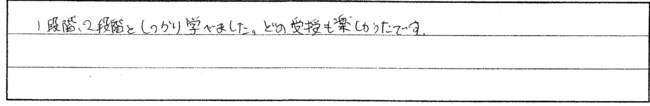 1段階、2段階としっかり学べました。どの受授も楽しかったです。